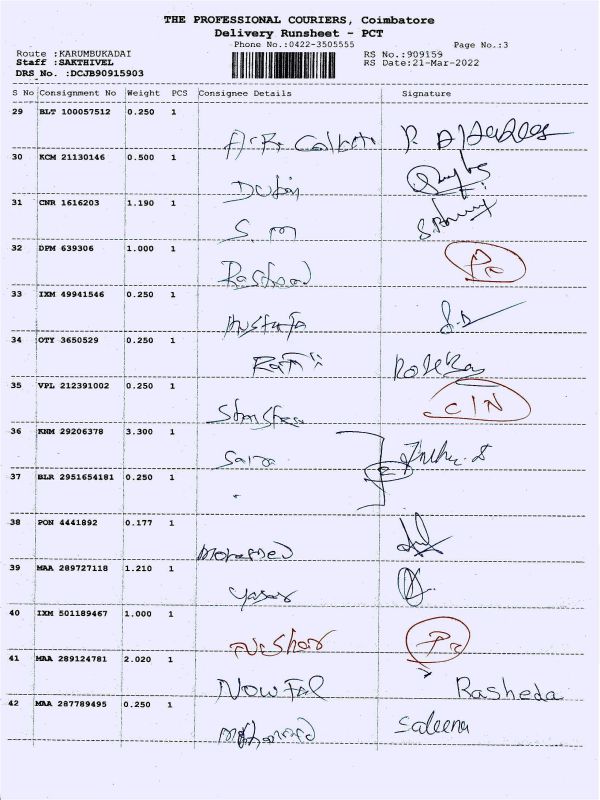 THE PROFESSIONAL COURIERS, Coimbatore
Delivery Runsheet - PCT
Phone No.:0422-3505555 Page No.:3
Route :KARUMBUKADAI RS No.:909159
Staff :SAKTHIVEL RS Date:21-Mar-2022
DRS No. :DCJB90915903
S No Consignment No Weight PCS Consignee Details Signature
29 BLT 100057512 0.250 1
30 KCM 21130146 0.500 1
Dubin
31 CNR 1616203 1.190 1
S. m
32 DPM 639306 1.000 1
Rashood
33 IXM 49941546 0.250 1
Mustufa
34 OTY 3650529 0.250 1
Rafi
35 VPL 212391002 0.250 1
C/N
36 KNM 29206378 3.300 1
Saira
37 BLR 2951654181 0.250 1
38 PON 4441892 0.177 1
Mohamed
39 MAA 289727118 1.210 1
Yasar
40 IXM 501189467 1.000 1
Nishar
41 MAA 289124781 2.020 1
Nowfal Rasheda
42 MAA 287789495 0.250 1
Mohamed Saleena